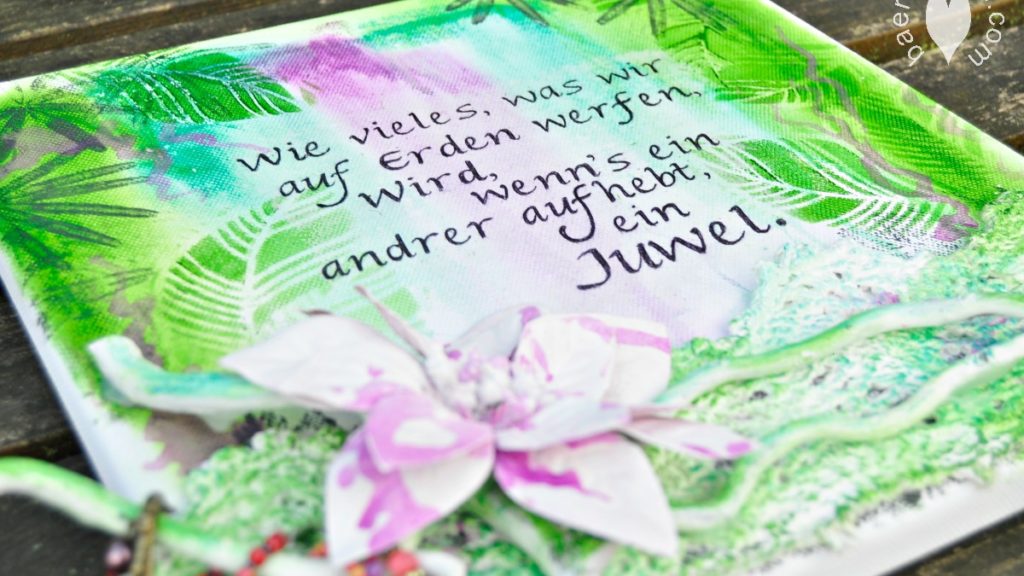 Wie vieles, was wir
auf Erden werfen,
Wird, wenn's ein
andrer aufhebt,
ein
Juwel.